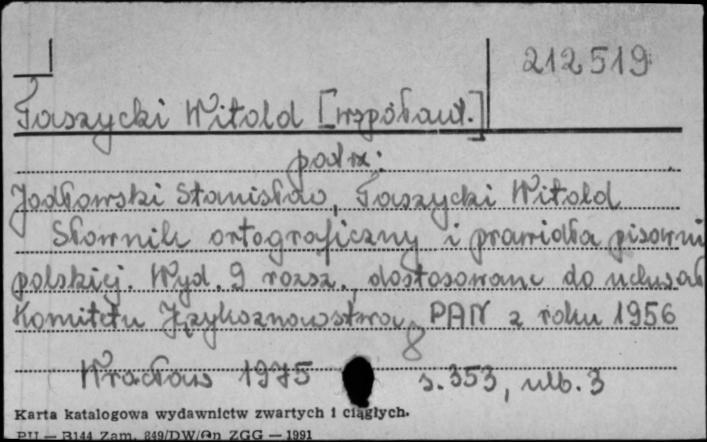 212519
Taszycki Witold [współaut.]
podr:
Jodłowski Stanisław, Taszycki Witold
Słownik ortograficzny i prawidła pisowni
polskiej. Wyd. 9 rozsz., dostosowane do uchwał
Komitetu Językoznawstwa PAN z roku 1956
Wrocław 1975 s. 353, nlb. 3
Karta katalogowa wydawnictw zwartych i ciągłych.
PU — B144 Zam. 849/DW/Qn ZGG — 1991